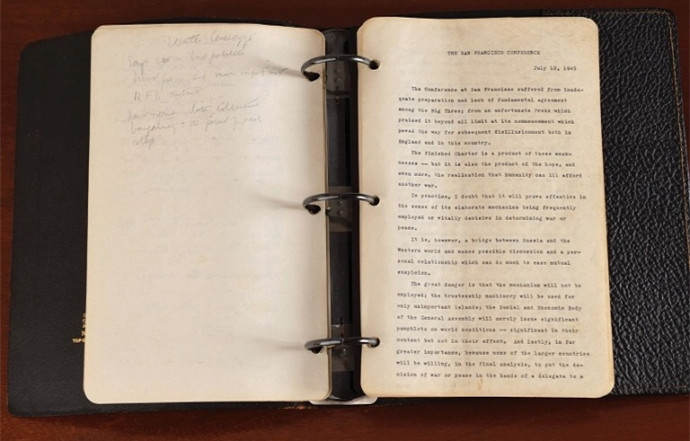 THE SAN FRANCISCO CONFERENCE
July 10, 1945
The Conference at San Francisco suffered from inade-
quate preparation and lack of fundamental agreement
among the Big Three; from an unfortunate Press which
praised it beyond all limit at its commencement which
paved the way for subsequent disillusionment both in
England and in this country.
The finished Charter is a product of these weak-
nesses -- but it is also the product of the hope, and
even more, the realization that humanity can ill afford
another war.
In practice, I doubt that it will prove effective in
the sense of its elaborate mechanics being frequently
employed or vitally decisive in determining war or
peace.
It is, however, a bridge between Russia and the
Western world and makes possible discussion and a per-
sonal relationship which can do much to ease mutual
suspicion.
The great danger is that the mechanism will not be
employed; the trusteeship machinery will be used for
only unimportant islands; the Social and Economic Body
of the General Assembly will merely issue significant
pamphlets on world conditions -- significant in their
content but not in their effect. And lastly, in far
greater importance, because none of the larger countries
will be willing, in the final analysis, to put the de-
cision of war or peace in the hands of a delegate to a